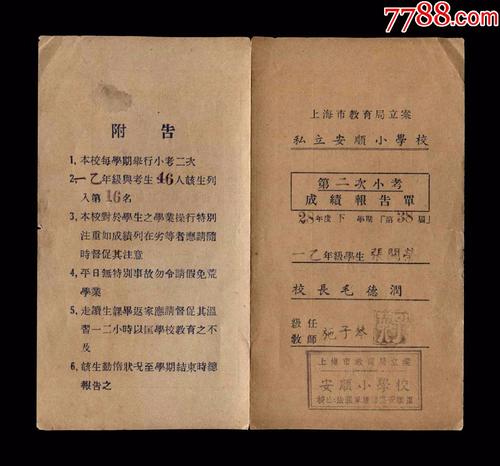 7788.com
附告
1、本校每學期舉行小考二次
2、一乙年級與考生46人該生列
入第16名
3、本校對於學生之學業操行特別
注重如成績列在劣等者應請隨
時督促其注意
4、平日無特別事故勿令請假免荒
學業
5、走讀生課畢返家應請督促其溫
習一二小時以匡學校教育之不
及
6、該生勤惰狀況至學期結束時總
報告之
上海市教育局立案
私立安順小學校
第二次小考
成績報告單
28年度下學期「第38屆」
一乙年級學生 張
校長毛德潤
級任
教師 施子
上海市教育局立案
安順小學校